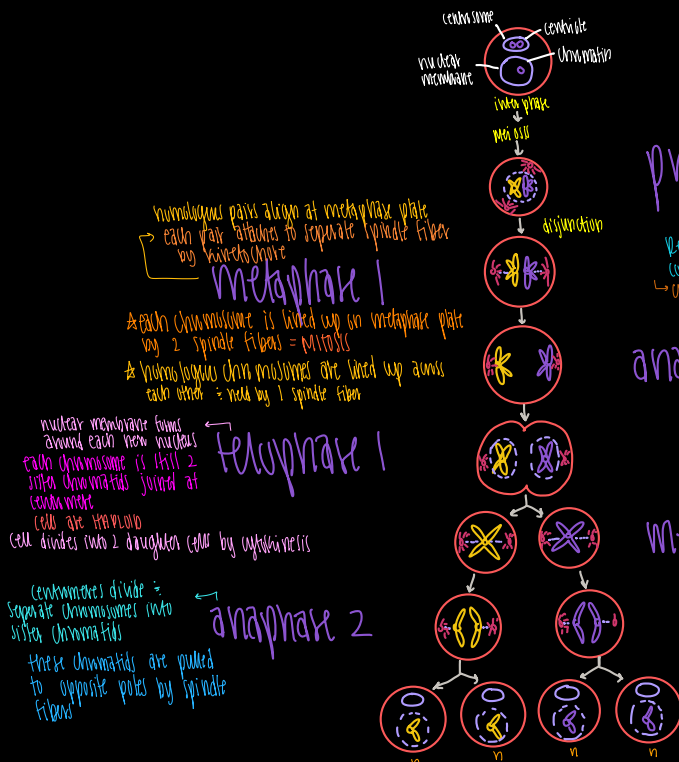 centrosome
centriole
nuclear
membrane
chromatin
interphase
meiosis
pr
homologous pairs align at metaphase plate
each pair attaches to separate spindle fiber
by kinetochore
disjunction
metaphase 1
☆each chromosome is lined up on metaphase plate
by 2 spindle fibers = MITOSIS
☆ homologous chromosomes are lined up across
each other & held by 1 spindle fiber
ana
nuclear membrane forms
around each new nucleus
telophase 1
each chromosome is still 2
sister chromatids joined at
centromere
cells are HAPLOID
cell divides into 2 daughter cells by cytokinesis
m
centromeres divide &
seperate chromosomes into
sister chromatids
anaphase 2
these chromatids are pulled
to opposite poles by spindle
fibers
n
n
n
n